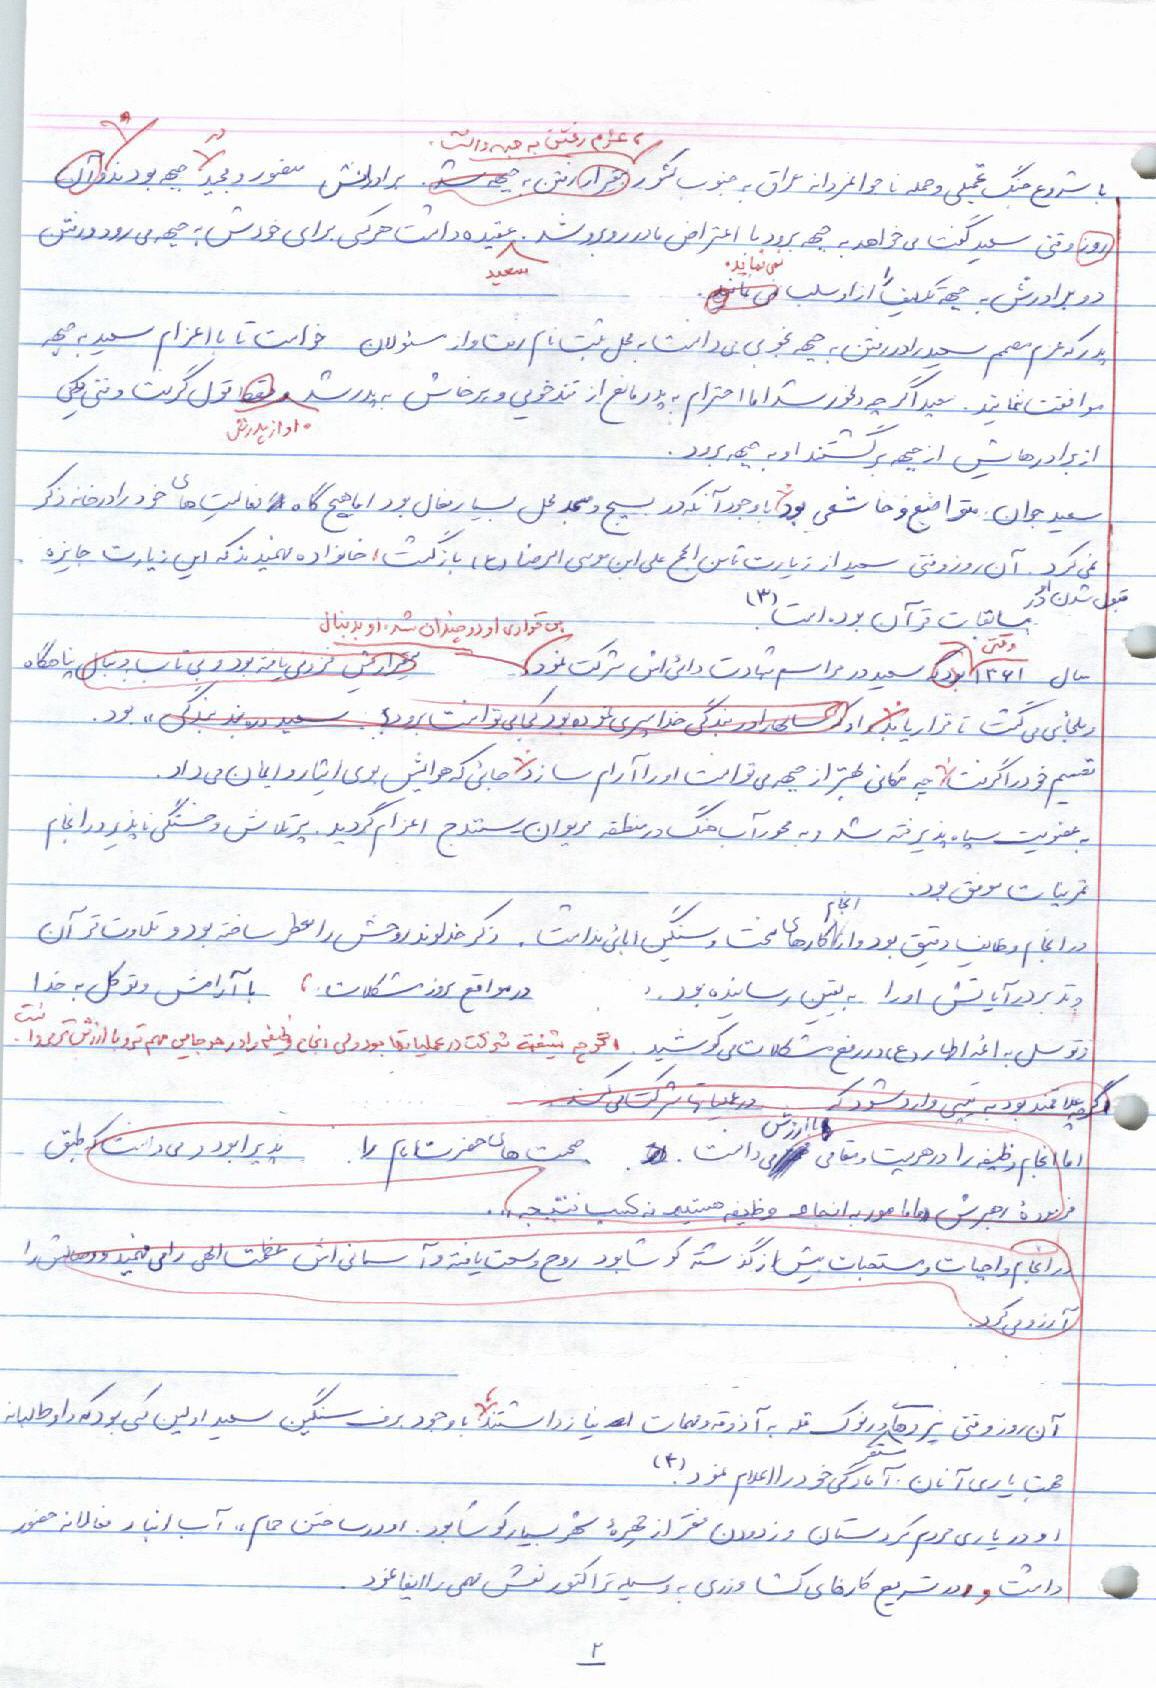 ، عزم رفتن به جبهه داشت.
با شروع جنگ تحمیلی و حمله ناجوانمردانه عراق به جنوب کشور رفتن به جبهه شد. برادرانش و مجید در جبهه بودند آن
روز وقتی سعید گفت می خواهد به جبهه برود با اعتراض مادر روبرو شد. عقیده داشت هرکس برای خودش به جبهه می رود و رفتن
سعید
نمی نماید.
دو برادرش به جبهه تکلیف را از او سلب نمی نماید.
پدر که عزم مصمم سعید را در رفتن به جبهه بخوبی می دانست به محل ثبت نام رفت و از مسئولان خواست تا با اعزام سعید به جبهه
موافقت نمایند. سعید اگر چه دلخور شد اما احترام به پدر مانع از تندخویی و پرخاش به پدر شد و فقط قول گرفت وقتی یکی
او از پدرش
از برادرهایش از جبهه برگشتند او به جبهه برود.
سعید جوان متواضع و خاشعی بود با وجود آنکه در بسیج و مسجد محل بسیار فعال بود اما هیچ گاه فعالیت های خود را در خانه ذکر
نمی کرد. آن روز وقتی سعید از زیارت ثامن الحجج علی ابن موسی الرضا (ع) بازگشت، خانواده فهمیدند که این زیارت جایزه
قبول شدن او در
مسابقات قرآن بوده است. (۳)
بی قراری او دو چندان شد. او بدنبال
وقتی
سال ۱۳۶۱ بود که سعید در مراسم شهادت دائی اش شرکت نمود بی قراریش فزونی یافته بود و بی تاب بدنبال پناهگاه
و ملجایی می گشت تا قرار یابد او که را در بندگی خدا سپری نموده بود کجا می توانست برود؟ سعید «در بند بندگی» بود.
تصمیم خود را گرفت چه مکانی بهتر از جبهه می توانست او را آرام سازد جایی که هوایش بوی ایثار و ایمان می داد.
به عضویت سپاه پذیرفته شد و به محور آب خنگ در منطقه مریوان سنندج اعزام گردید. پرتلاش و خستگی ناپذیر در انجام
تمرینات موفق بود.
انجام
در انجام وظایف دقیق بود و از کارهای سخت و سنگین ابائی نداشت. ذکر خداوند روحش را معطر ساخته بود و تلاوت قرآن
و تدبر در آیاتش او را به یقین رسانیده بود. در مواقع بروز مشکلات، با آرامش و توکل به خدا
و توسل به ائمه اطهار (ع) در رفع مشکلات می کوشید. اگر چه شیفته شرکت در عملیاتها بود ولی انجام وظیفه را در هر جایی مهم و با ارزش می دانست.
اگر چه علاقمند بود به تیپی وارد شود که در عملیاتها شرکت می کند
با ارزش
اما انجام وظیفه را در هر پست و مقامی می دانست. صحبت های حضرت امام را پذیرا بود و می دانست که طبق
فرموده رهبرش «ما مامور به انجام وظیفه هستیم نه کسب نتیجه».
در انجام واجبات و مستحبات بیش از گذشته کوشا بود روح وسعت یافته و آسمانی اش عظمت الهی را می فهمید و وصالش را
آرزو می کرد.
آن روز وقتی نیروهای در نوک قله به آذوقه و مهمات نیاز داشتند با وجود برف سنگین سعید اولین کسی بود که داوطلبانه
مستقر
جهت یاری آنان آمادگی خود را اعلام نمود. (۴)
او در یاری مردم کردستان و زدودن فقر از چهره شهر بسیار کوشا بود. او در ساختن حمام، آب انبار فعالانه حضور
داشت و در تسریع کارهای کشاورزی به وسیله تراکتور نقش مهمی را ایفا نمود.
۲